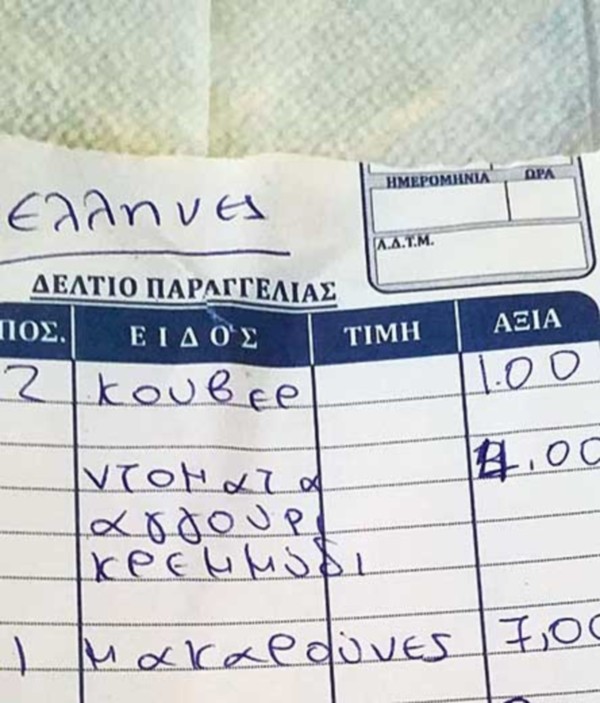 ΗΜΕΡΟΜΗΝΙΑ ΩΡΑ
Ελληνες
Α.Δ.Τ.Μ.
ΔΕΛΤΙΟ ΠΑΡΑΓΓΕΛΙΑΣ
ΠΟΣ. ΕΙΔΟΣ ΤΙΜΗ ΑΞΙΑ
2 κουβερ 1.00
ντοματα 4.00
αγγουρι
κρεμμύδι
1 μακαρούνες 7,00